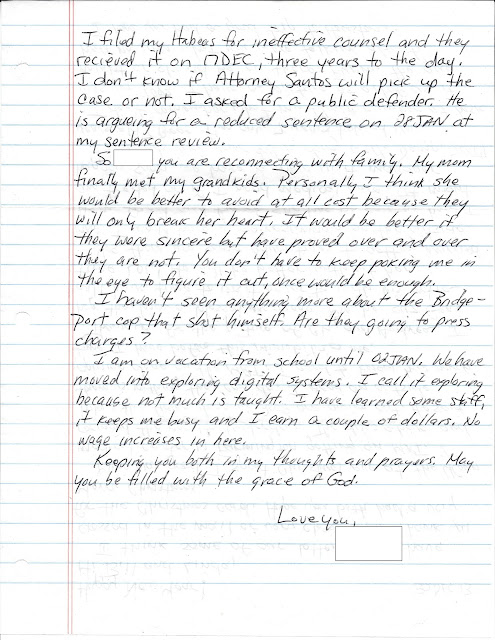 I filed my Habeas for ineffective counsel and they
recieved it on 17DEC, three years to the day.
I don't know if Attorney Santos will pick up the
case or not. I asked for a public defender. He
is argueing for a reduced sentence on 28JAN at
my sentence review.
So you are reconnecting with family. My mom
finally met my grandkids. Personally I think she
would be better to avoid at all cost because they
will only break her heart. It would be better if
they were sincere but have proved over and over
they are not. You don't have to keep poking me in
the eye to figure it out, once would be enough.
I haven't seen anything more about the Bridge-
port cop that shot himself. Are they going to press
charges?
I am on vacation from school until 02JAN. We have
moved into exploring digital systems. I call it exploring
because not much is taught. I have learned some stuff,
it keeps me busy and I earn a couple of dollars. No
wage increases in here.
Keeping you both in my thoughts and prayers. May
you be filled with the grace of God.
Love you,